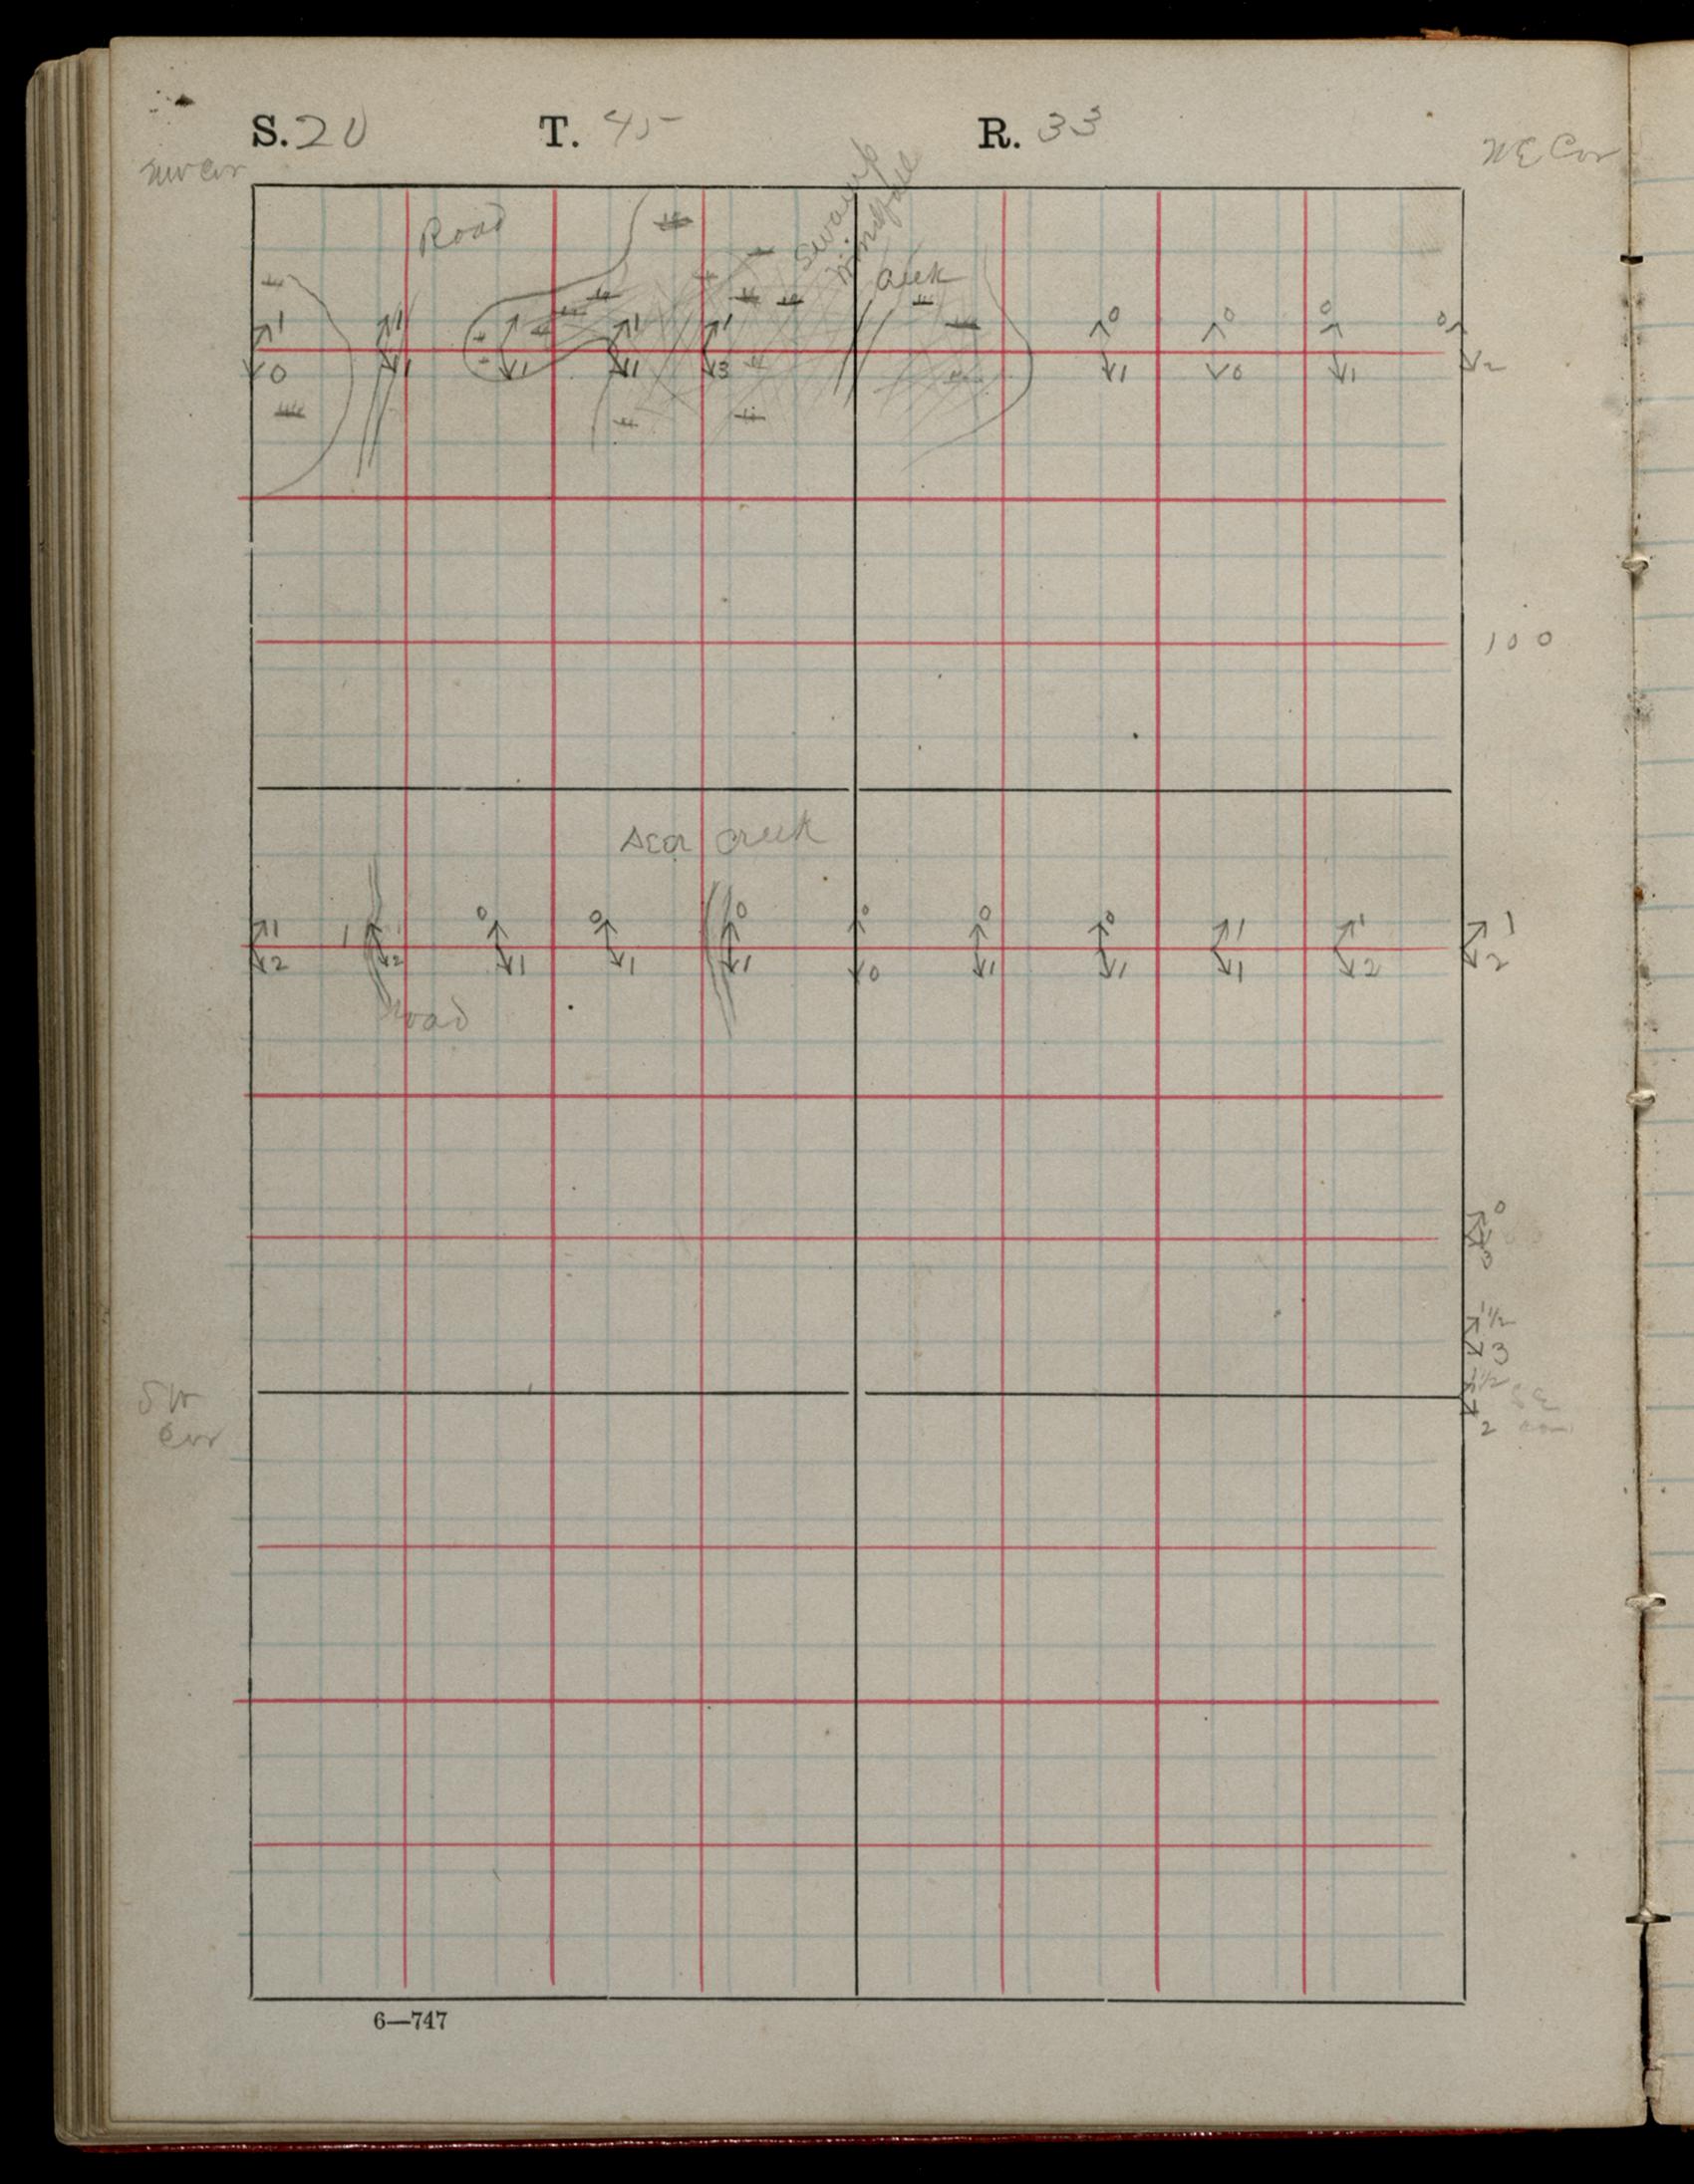 S. 20 T. 45 R. 33
NW Cor
NE Cor
Road
Swamp
Windfall
creek
1 1 1 1 0 0 0 0
0 1 1 1 3 1 0 1 2
100
creek
1 1 0 0 0 0 0 0 1 1 1
2 2 1 1 1 0 1 1 1 2 2
Road
0
3
1 1/2
3
1/2
SW
Cor
SE
2 Cor
6—747